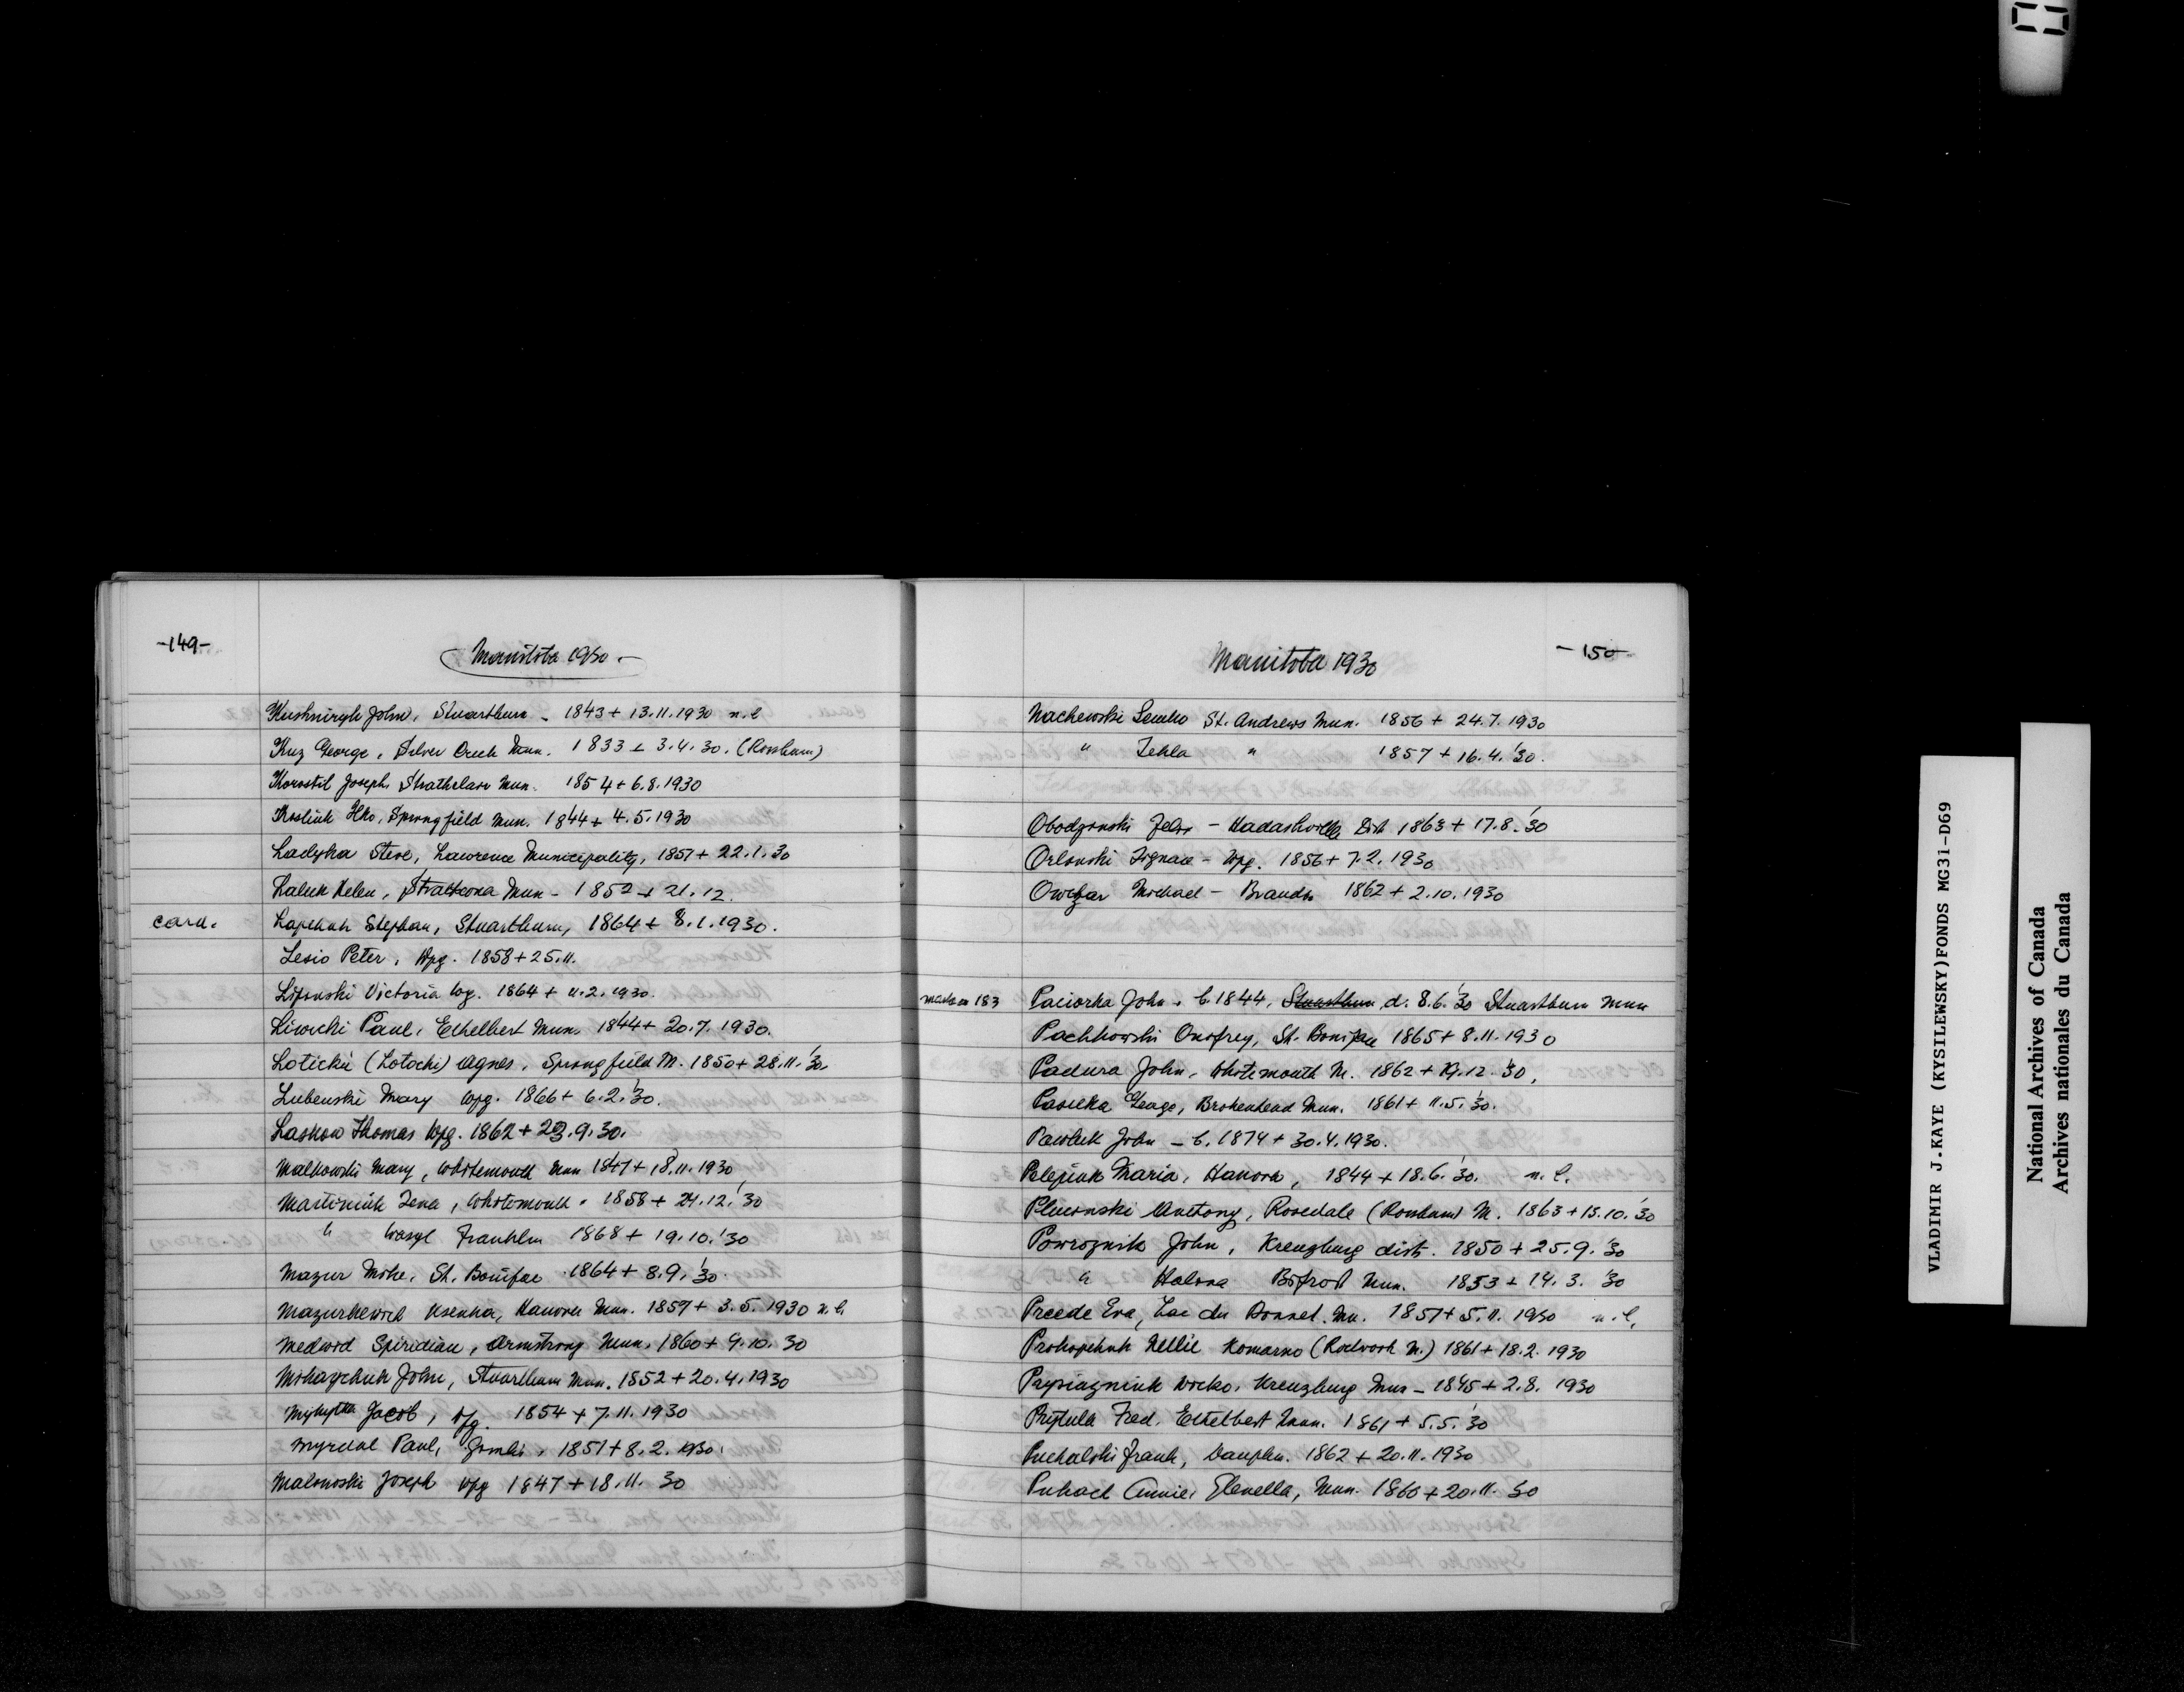 -149-
Manitoba 1930 -
Kushniryk John, Stuartburn - 1843 + 13.11.1930 n.l
Kuz George, Silver Creek Mun. 1833 + 3.4.30. (Rossburn)
Korostil Joseph, Strathclair Mun. 1854 + 6.8.1930
Kosliuk Ilko, Springfield Mun. 1844 + 4.5.1930
Ladyka Steve, Lawrence Municipality, 1857 + 22.1.30
Laluk Helen, Strathcona Mun - 1852 + 21.12.
card. Lapchuk Stephan, Stuartburn, 1864 + 8.1.1930.
Lesio Peter, Wpg. 1858 + 25.11.
Lipinski Victoria Wpg. 1864 + 11.2.1930.
Liwicki Paul, Ethelbert Mun. 1844 + 20.7.1930.
Loticki (Lotocki) Agnes, Springfield M. 1850 + 28.11.'30.
Lubenski Mary Wpg. 1866 + 6.2.'30.
Laskow Thomas Wpg. 1862 + 23.9.30.
Malkowski Mary, Whitemouth Mun 1847 + 18.11.1930
Martiniuk Lena, Whitemouth - 1858 + 24.12.'30
" Wasyl Franklin 1868 + 19.10.'30
Mazur Mike, St. Boniface 1864 + 8.9.'30.
Mazurkewich Ksenka, Hanover Mun. 1857 + 3.5.1930 n.l.
Medwid Spiridian, Armstrong Mun. 1860 + 9.10.30
Mihaychuk John, Stuartburn Mun. 1852 + 20.4.1930
Jacob, Wpg. 1854 + 7.11.1930
Myrdul Paul, Gimli, 1851 + 8.2.1930.
Malinoski Joseph Wpg 1847 + 18.11.30
Manitoba 1930
-150-
Nachewski Semko St. Andrews Mun. 1856 + 24.7.1930
" Tekla " 1857 + 16.4.'30.
Obodzinski Felix - Hadashville Dist 1863 + 17.8.'30
Orlonski Ignace - Wpg. 1856 + 7.2.1930
Owczar Michael - Brandon 1862 + 2.10.1930
183 Paciorka John, b. 1844, Stuartburn d. 8.6.'30 Stuartburn Mun
Pachkowski Onofrey, St. Boniface 1865 + 8.11.1930
Padura John, Whitemouth M. 1862 + 19.12.'30.
Pasieka George, Brokenhead Mun. 1861 + 11.5.'30.
Pawluk John - b. 1874 + 30.4.1930.
Pelepiuk Maria, Hanover, 1844 + 18.6.'30. n.l.
Plucinski Anttony, Rosedale (Rossburn) M. 1863 + 13.10.'30
Powroznik John, Kreuzburg dist. 1850 + 25.9.'30
" Halina Bifrost Mun. 1853 + 14.3.'30
Preede Eva, Lac du Bonnet Mu. 1857 + 5.11.1930 n.l.
Prokopchuk Nellie Komarno (Rockwood M.) 1861 + 18.2.1930
Prysiazniuk Wicko, Kreuzburg Mun - 1845 + 2.8.1930
Prytula Fred, Ethelbert Mun. 1861 + 5.5.'30
Puchalski Frank, Dauphin. 1862 + 20.11.1930
Puhach Annie, Glenella, Mun. 1860 + 20.11.30
VLADIMIR J.KAYE (KYSILEWSKY)FONDS MG31-D69
National Archives of Canada
Archives nationales du Canada